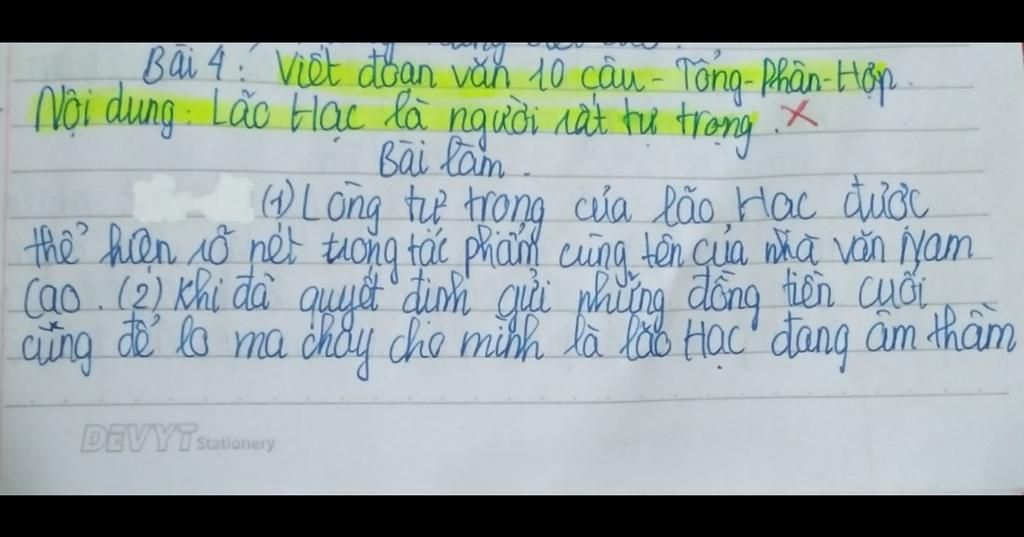 Bài 4: Viết đoạn văn 10 câu - Tổng-Phân-Hợp.
Nội dung: Lão Hạc là người rất tự trọng.
Bài làm.
(1) Lòng tự trọng của lão Hạc được
thể hiện rõ nét trong tác phẩm cùng tên của nhà văn Nam
Cao. (2) Khi đã quyết định gửi những đồng tiền cuối
cùng để lo ma chay cho mình là lão Hạc đang âm thầm
DEVYT Stationery